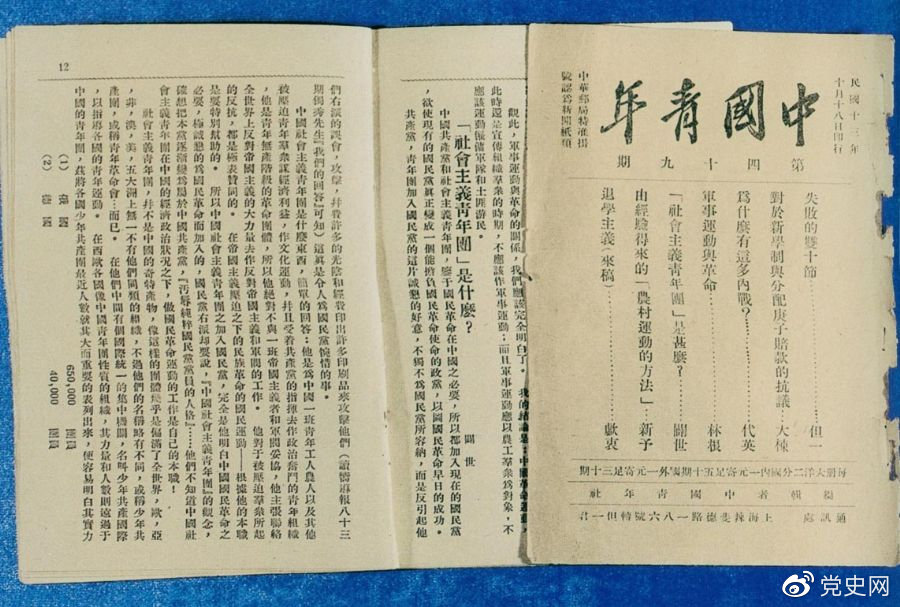 民國十三年
十月十八日印行
中國青年
第四十九期
中華郵局特准掛
號認爲新聞紙類
失敗的雙十節……但一
對於新學制與分配庚子賠款的抗議……大棟
爲什麼有這多內戰?……代英
軍事運動與革命……林根
「社會主義青年團」是甚麼?……闘世
由經驗得來的「農村運動的方法」……新予
退學主義(來稿)……獻衷
每册大洋二分國內一元寄足五十期國外一元寄足三十期
編輯者中國青年社
通訊處 上海辣斐德路一八六號轉但一君
觀此,軍事運動與革命的關係,我們應該完全明白了。
此時還是宣傳組織羣衆的時期,不應該作軍事運動;而且軍事運動應以農工羣衆爲對象,不
應該運動僱傭軍隊和土匪游民。
「社會主義青年團」是什麼?
闘世
中國共產黨和社會主義青年團,鑒于國民革命在中國之必要,所以都加入現在的國民黨
,欲使現有的國民黨眞正變成一個能擔負國民革命使命的政黨,以圖國民革命早日的成功。
共產黨,青年團加入國民黨的這片誠懇的好意,不獨不爲國民黨所容納,而是反引起他
12
們右派的誤會,攻擊,并費許多的光陰和經費印出許多印刷品來攻擊他們(讀嚮導報八十三
期獨秀先生『我們的回答』可知)這眞是令人爲國民黨惋惜的事。
中國社會主義青年團是什麼東西,簡單的回答:他是爲中國一班青年工人農人以及其他
被壓迫青年羣衆謀經濟利益,作文化運動,幷且受着共產黨的指揮去作政治奮鬥的青年組織
,他是青年無產階級的革命團體,所以他絕對不與一班帝國主義者和軍閥妥協,他主張聯絡
全世界上反對帝國主義的大力量去作反對帝國主義和軍閥的工作。他對于被壓迫羣衆所起
的反抗,都是極表贊同的。在帝國主義壓迫之下的民族革命的國民運動——根據他的本職
是要特別幫助的。所以中國社會主義青年團之加入國民黨,完全是他明白中國國民革命之
必要,極誠懇的爲國民革命而加入的,國民黨右派却要說,『中國社會主義青年團』的觀念,
確想把本黨逐漸變爲屬於中國共產黨,『汚辱純粹國民黨黨員的人格』……他們不知道中國社
會主義青年團在中國的經濟政治狀況之下,做國民革命運動的工作是自己的本職!
社會主義青年團,幷不是中國的奇特產物,像這樣的團體幾乎是偏滿了全世界,歐,亞
,非,澳,美,五大洲上無一不有他們同類的組織,不過他們的名稱略有不同,或稱少年共
產團,或稱青年革命會…而已。在他們中間有個國際統一的集中機關,名叫少年共產國際
,以指導各國的青年運動。在西歐各國像中國青年團性質的組織,其力量和人數則遠過于
中國的青年團,茲將各國少年共產團最近人數就其大而重要的表列出來,使容易明白其實力
(1) 650,000 團員
(2) 40,000 團員
党史网